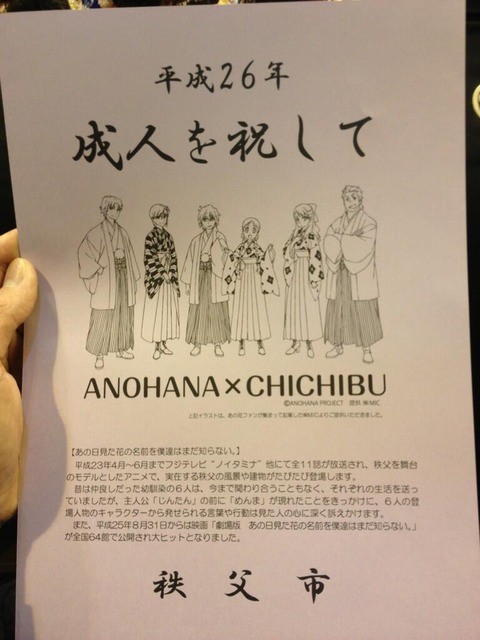 平成26年
成人を祝して
ANOHANA×CHICHIBU
©ANOHANA PROJECT 提供 ㈱MIC
上記イラストは、あの花ファンが集まって起業した㈱MICよりご提供いただきました。
【あの日見た花の名前を僕達はまだ知らない。】
平成23年4月~6月までフジテレビ“ノイタミナ”他にて全11話が放送され、秩父を舞台
のモデルとしたアニメで、実在する秩父の風景や建物がたびたび登場します。
昔は仲良しだった幼馴染の6人は、今まで関わり合うこともなく、それぞれの生活を送っ
ていましたが、主人公「じんたん」の前に「めんま」が現れたことをきっかけに、6人の登
場人物のキャラクターから発せられる言葉や行動は見た人の心に深く訴えかけます。
また、平成25年8月31日からは映画「劇場版 あの日見た花の名前を僕達はまだ知らない。」
が全国64館で公開され大ヒットとなりました。
秩父市